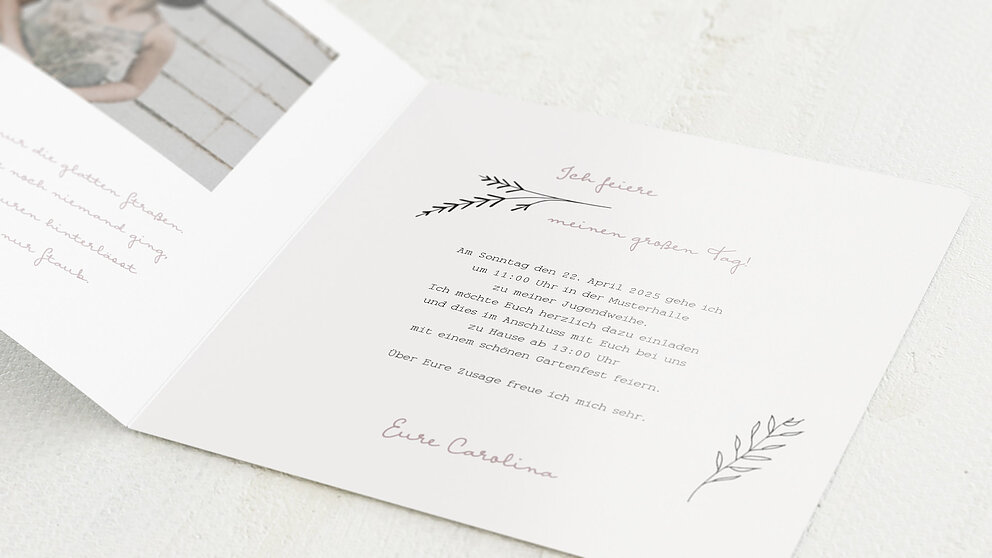 nur die glatten Straßen
noch niemand ging,
hinterlässt
nur Staub.
Ich feiere
meinen großen Tag!
Am Sonntag den 22. April 2025 gehe ich
um 11:00 Uhr in der Musterhalle
zu meiner Jugendweihe.
Ich möchte Euch herzlich dazu einladen
und dies im Anschluss mit Euch bei uns
zu Hause ab 13:00 Uhr
mit einem schönen Gartenfest feiern.
Über Eure Zusage freue ich mich sehr.
Eure Carolina